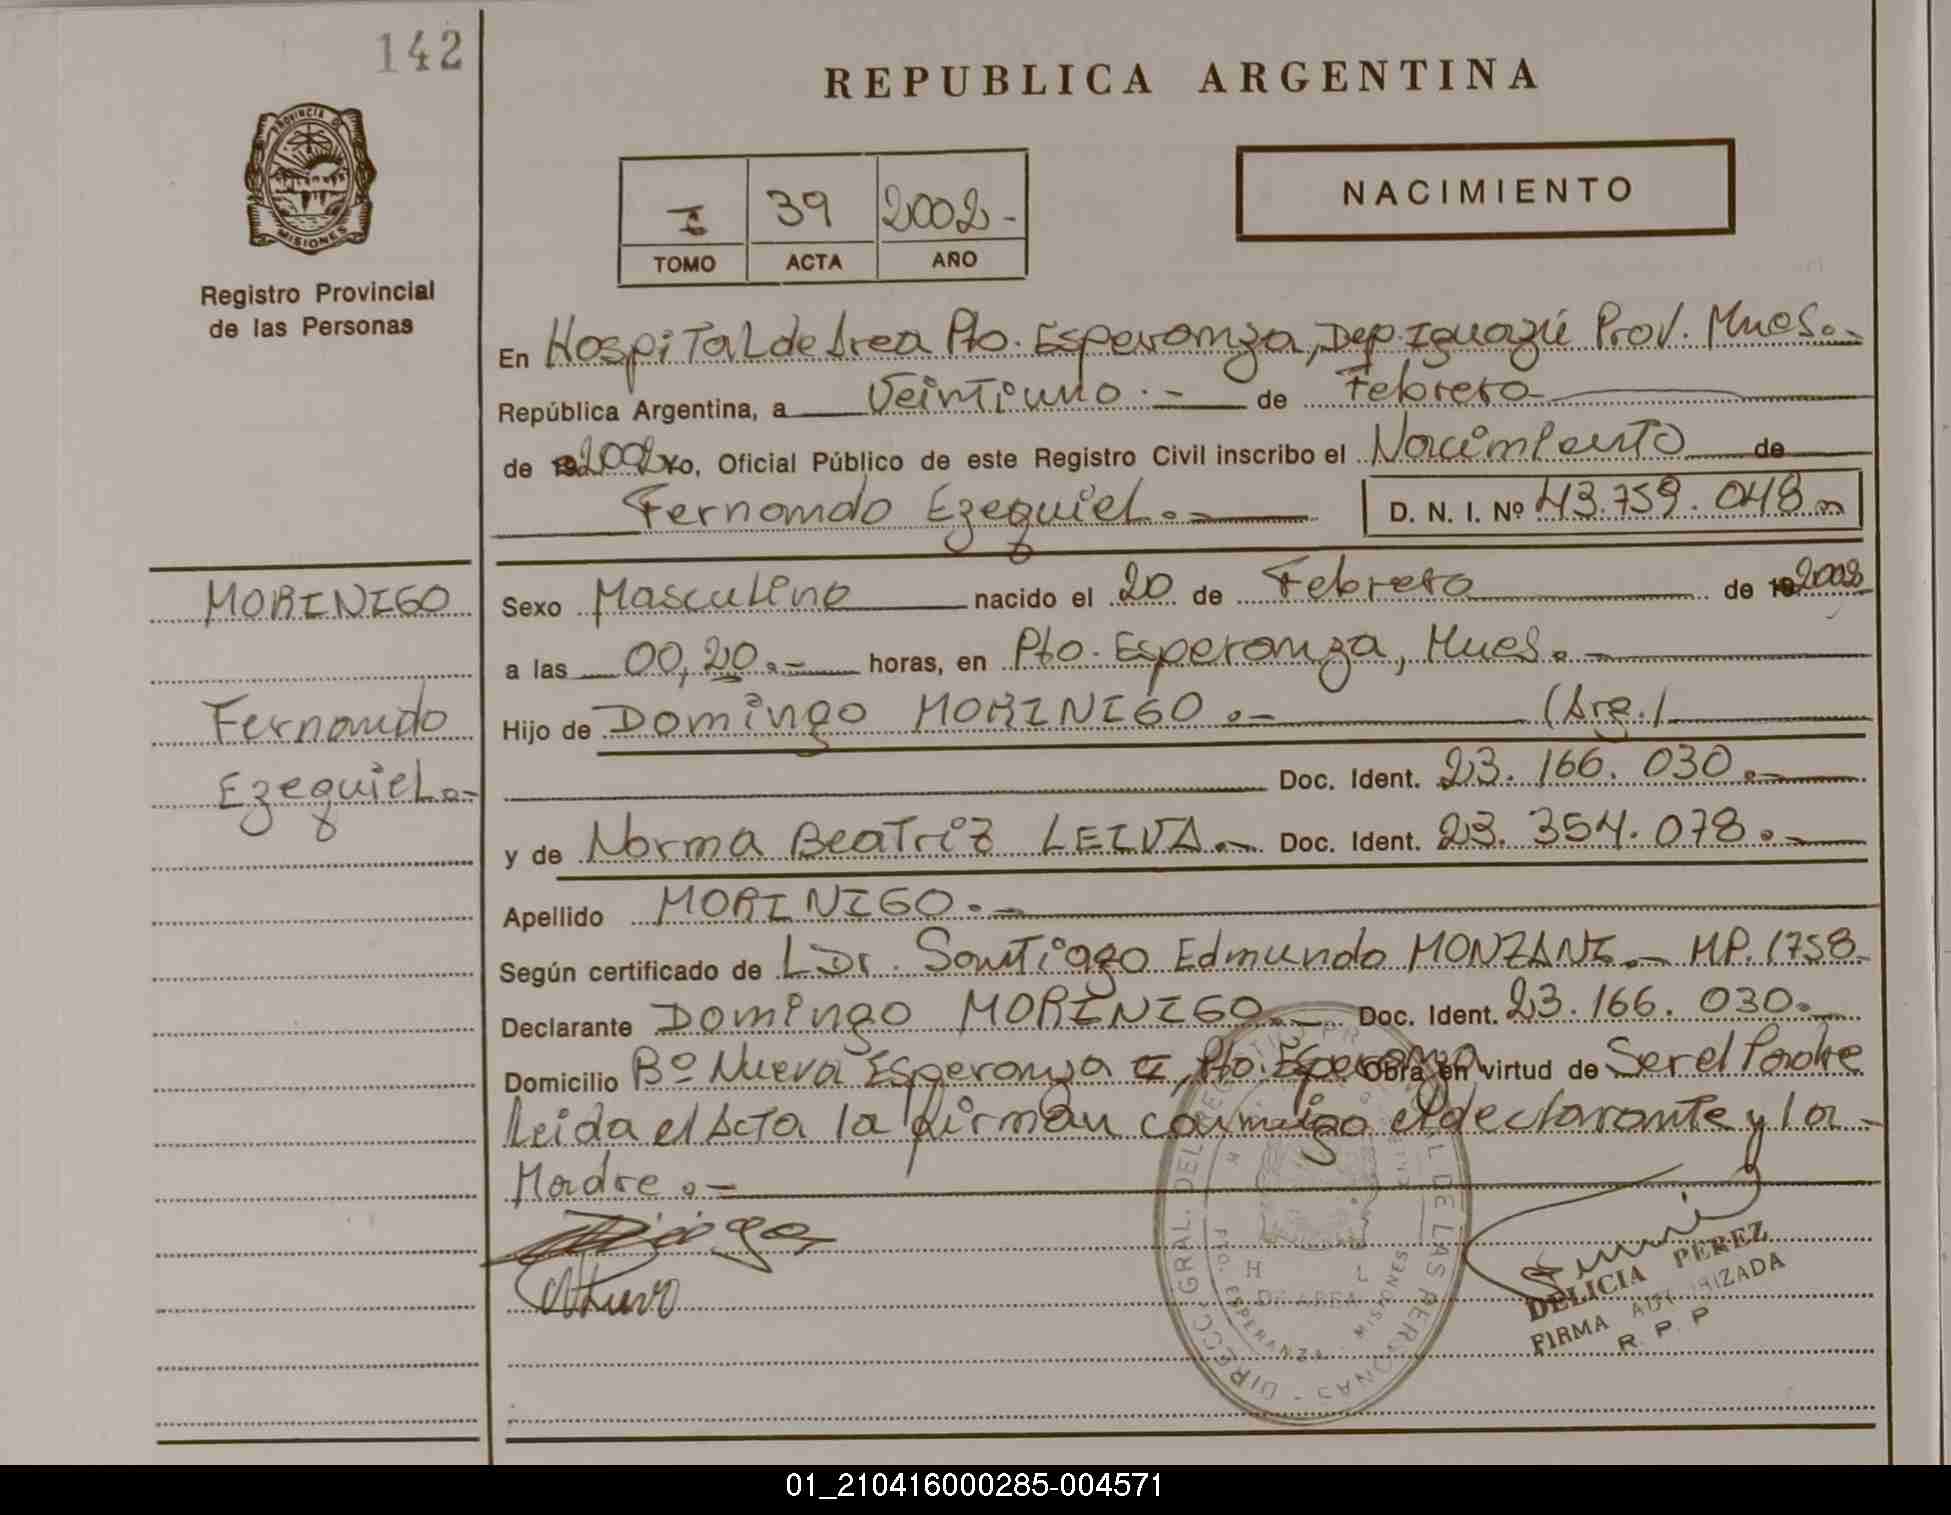 142
REPUBLICA ARGENTINA
PROVINCIA DE
MISIONES
Registro Provincial
de las Personas
I 39 2002-
TOMO ACTA AÑO
NACIMIENTO
En Hospital de Area Pto. Esperanza, Dep. Iguazú Prov. Mnes.-
República Argentina, a Veintiuno.- de Febrero
de 2002 Yo, Oficial Público de este Registro Civil inscribo el Nacimiento de
Fernando Ezequiel.- D. N. I. Nº 43.759.048.-
MORINIGO
Fernando
Ezequiel.-
Sexo Masculino nacido el 20 de Febrero de 2002
a las 00,20.- horas, en Pto. Esperanza, Mnes.-
Hijo de Domingo MORINIGO.- (Arg.)
Doc. Ident. 23.166.030.-
y de Norma Beatriz LEIVA.- Doc. Ident. 23.354.078.-
Apellido MORINIGO.-
Según certificado de Dr. Santiago Edmundo MONZANI.- MP. 1758-
Declarante Domingo MORINIGO.- Doc. Ident. 23.166.030.-
Domicilio Bº Nueva Esperanza, Pto. Esperanza Obra en virtud de Ser el Padre
Leida el Acta la firman conmigo el declarante y la-
Madre.-
DIRECC. GRAL. DEL REGISTRO PROVINCIAL DE LAS PERSONAS -
H L
DE AREA
PTO. ESPERANZA - MISIONES
DELICIA PEREZ
FIRMA AUTORIZADA
R. P. P
01_210416000285-004571